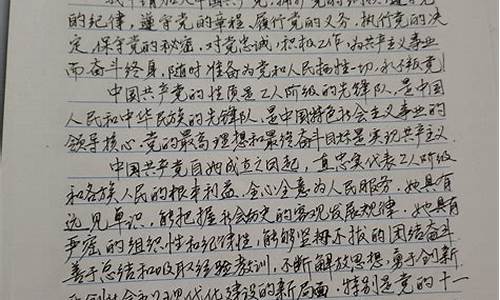 我申请加入中国共产党,拥护党的纲领,遵守党
的纪律,遵守党的章程,履行党的义务,执行党的决
定,保守党的秘密,对党忠诚,积极工作,为共产主义事业
而奋斗终身,随时准备为党和人民牺牲一切,永不叛党!
中国共产党的性质是工人阶级的先锋队,是中国
人民和中华民族的先锋队,是中国特色社会主义事业的
领导核心,党的最高理想和最终奋斗目标是实现共产主义.
中国共产党自她成立之日起,直忠实代表工人阶级
和各族人民的根本利益,全心全意为人民服务.她具有
远见卓识,能把握社会历史的客观发展规律.她具有
严密的组织性和纪律性,能够坚持不拔的团结奋斗
善于总结和吸取经验教训,不断解放思想,勇于创新
社会主义现代化建设的新局面,特别是党的十一